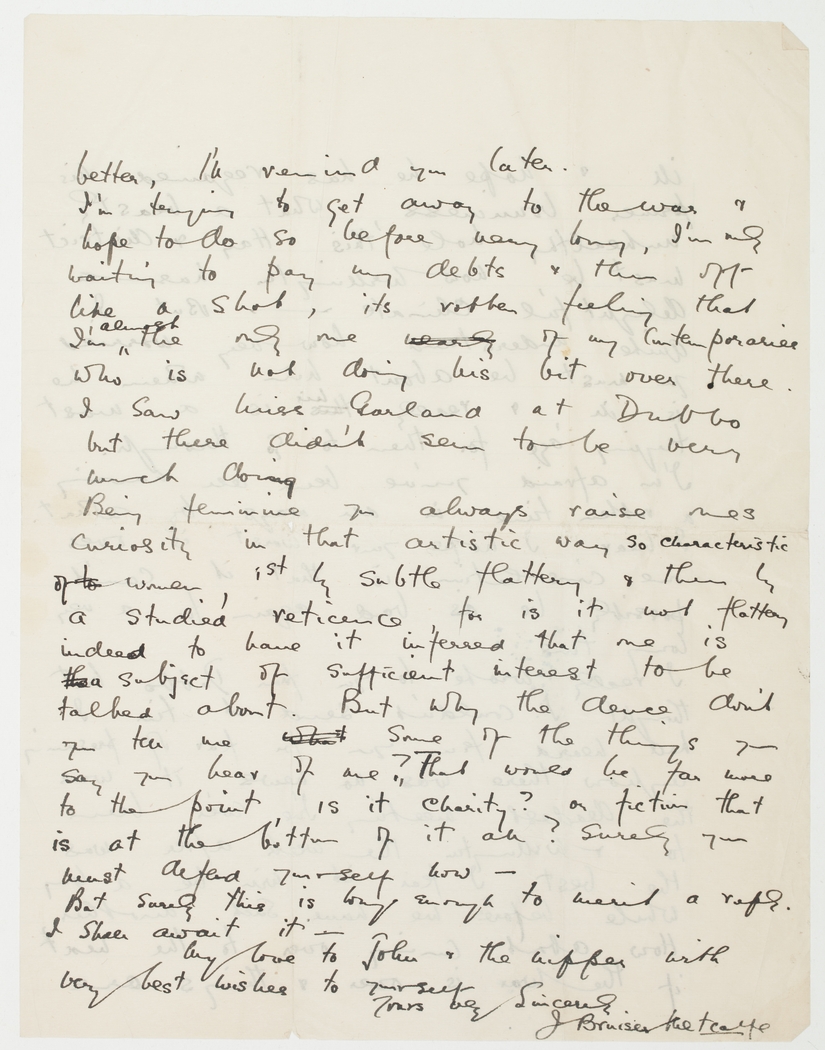 better, I'll remind you later.
I'm trying to get away to the war &
hope to do so before very long, I'm only
waiting to pay my debts & then off
like a shot, its rotten feeling that
I'm almost the only one nearly of my Contemporaries
who is not doing his bit over there.
I saw Miss Garland at Dubbo
but there didn't seem to be very
much doing
Being feminine you always raise ones
curiosity in that artistic way so characteristic
of to women, 1st by subtle flattery & then by
a studied reticence, for is it not flattery
indeed to have it inferred that one is
a subject of sufficient interest to be
talked about. But why the deuce don't
you tell me what some of the things you
say you hear of me? That would be far more
to the point, is it charity? or fiction that
is at the bottom of it all? Surely you
must defend yourself now —
But surely this is long enough to merit a reply.
I shall await it —
My love to John & the nipper with
very best wishes to yourself
Yours very Sincerely
J Bruiser Metcalfe